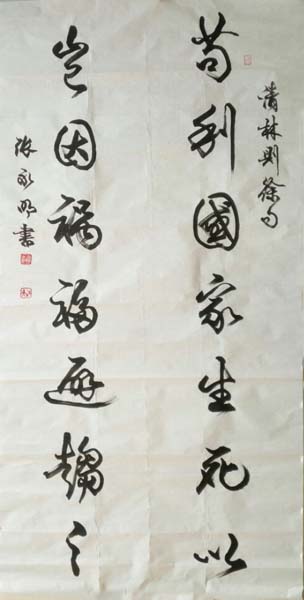 林則徐句
苟利國家生死以
豈因禍福避趨之
張永明書